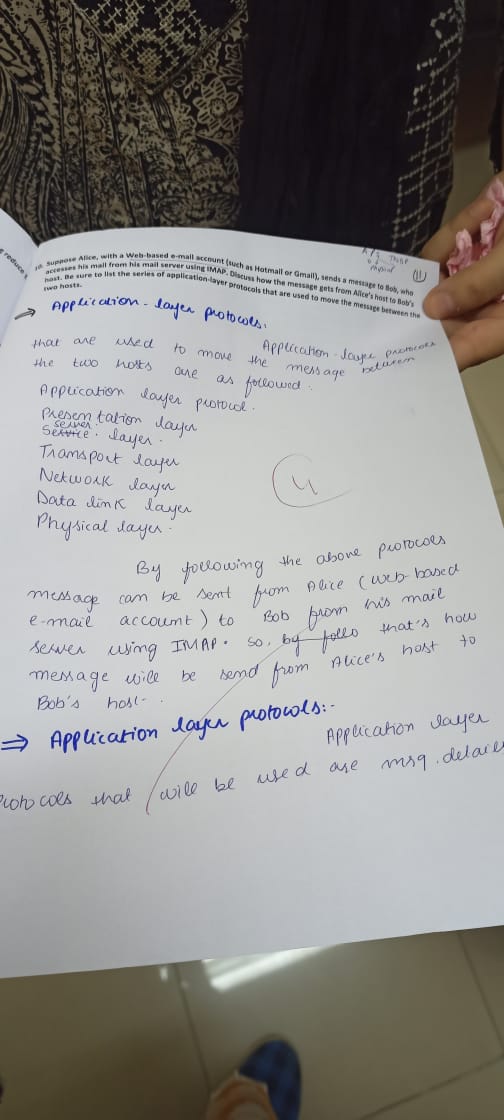 e reduce
10. Suppose Alice, with a Web-based e-mail account (such as Hotmail or Gmail), sends a message to Bob, who
accesses his mail from his mail server using IMAP. Discuss how the message gets from Alice's host to Bob's
host. Be sure to list the series of application-layer protocols that are used to move the message between the
two hosts.
Physical
(11)
→ Application-layer protocols:
Application-layer protocols
that are used to move the message between
the two hosts are as followed.
Application layer protocol.
Presentation layer
server
Service layer.
Transport layer
Network layer
Data link layer
Physical layer.
4
By following the above protocols
message can be sent from Alice (web-based
e-mail account) to Bob from his mail
server using IMAP. so, by follo that's how
message will be send from Alice's host to
Bob's host.
⇒ Application layer protocols:-
Application layer
protocols that will be used are msg.